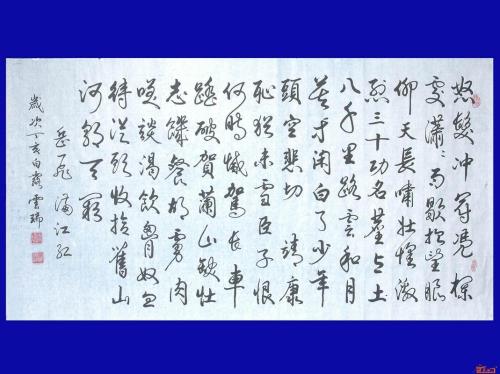 怒髮冲冠憑欄
處瀟々雨歇抬望眼
仰天長嘯壯懷激
烈三十功名塵与土
八千里路雲和月
莫等閑白了少年
頭空悲切 靖康
恥猶未雪臣子恨
何時滅駕長車
踏破賀蘭山缺壯
志饑餐胡虜肉
笑談渴飲匈奴血
待從頭收拾舊山
河朝天闕
岳飛滿江紅
歲次丁亥白露雲瑞